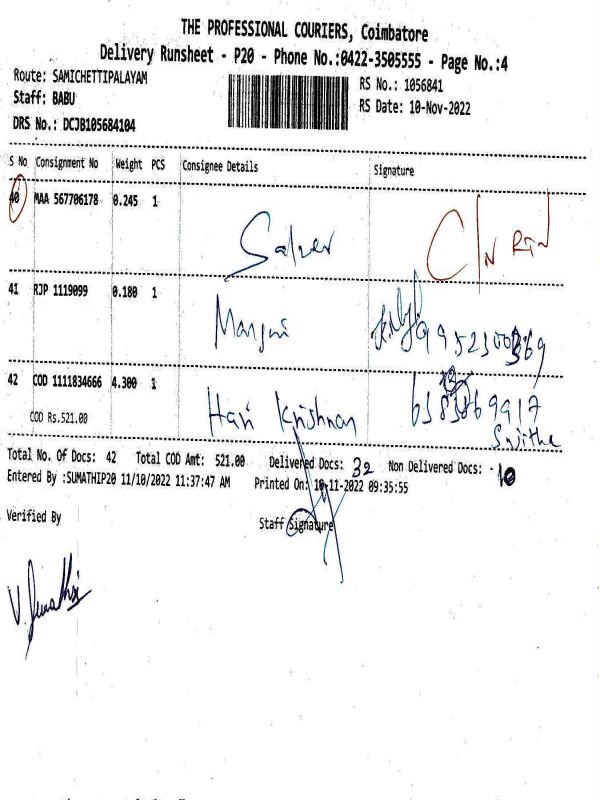 THE PROFESSIONAL COURIERS, Coimbatore
Delivery Runsheet - P20 - Phone No.:0422-3505555 - Page No.:4
Route: SAMICHETTIPALAYAM
RS No.: 1056841
Staff: BABU
RS Date: 10-Nov-2022
DRS No.: DCJB105684104
S No Consignment No Weight PCS Consignee Details Signature
40 MAA 567706178 0.245 1
41 RJP 1119099 0.180 1
42 COD 1111834666 4.300 1 Hari Krishnan
COD Rs.521.00
Total No. Of Docs: 42 Total COD Amt: 521.00 Delivered Docs: 32 Non Delivered Docs: 10
Entered By :SUMATHIP20 11/10/2022 11:37:47 AM Printed On: 10-11-2022 09:35:55
Verified By
Staff Signature